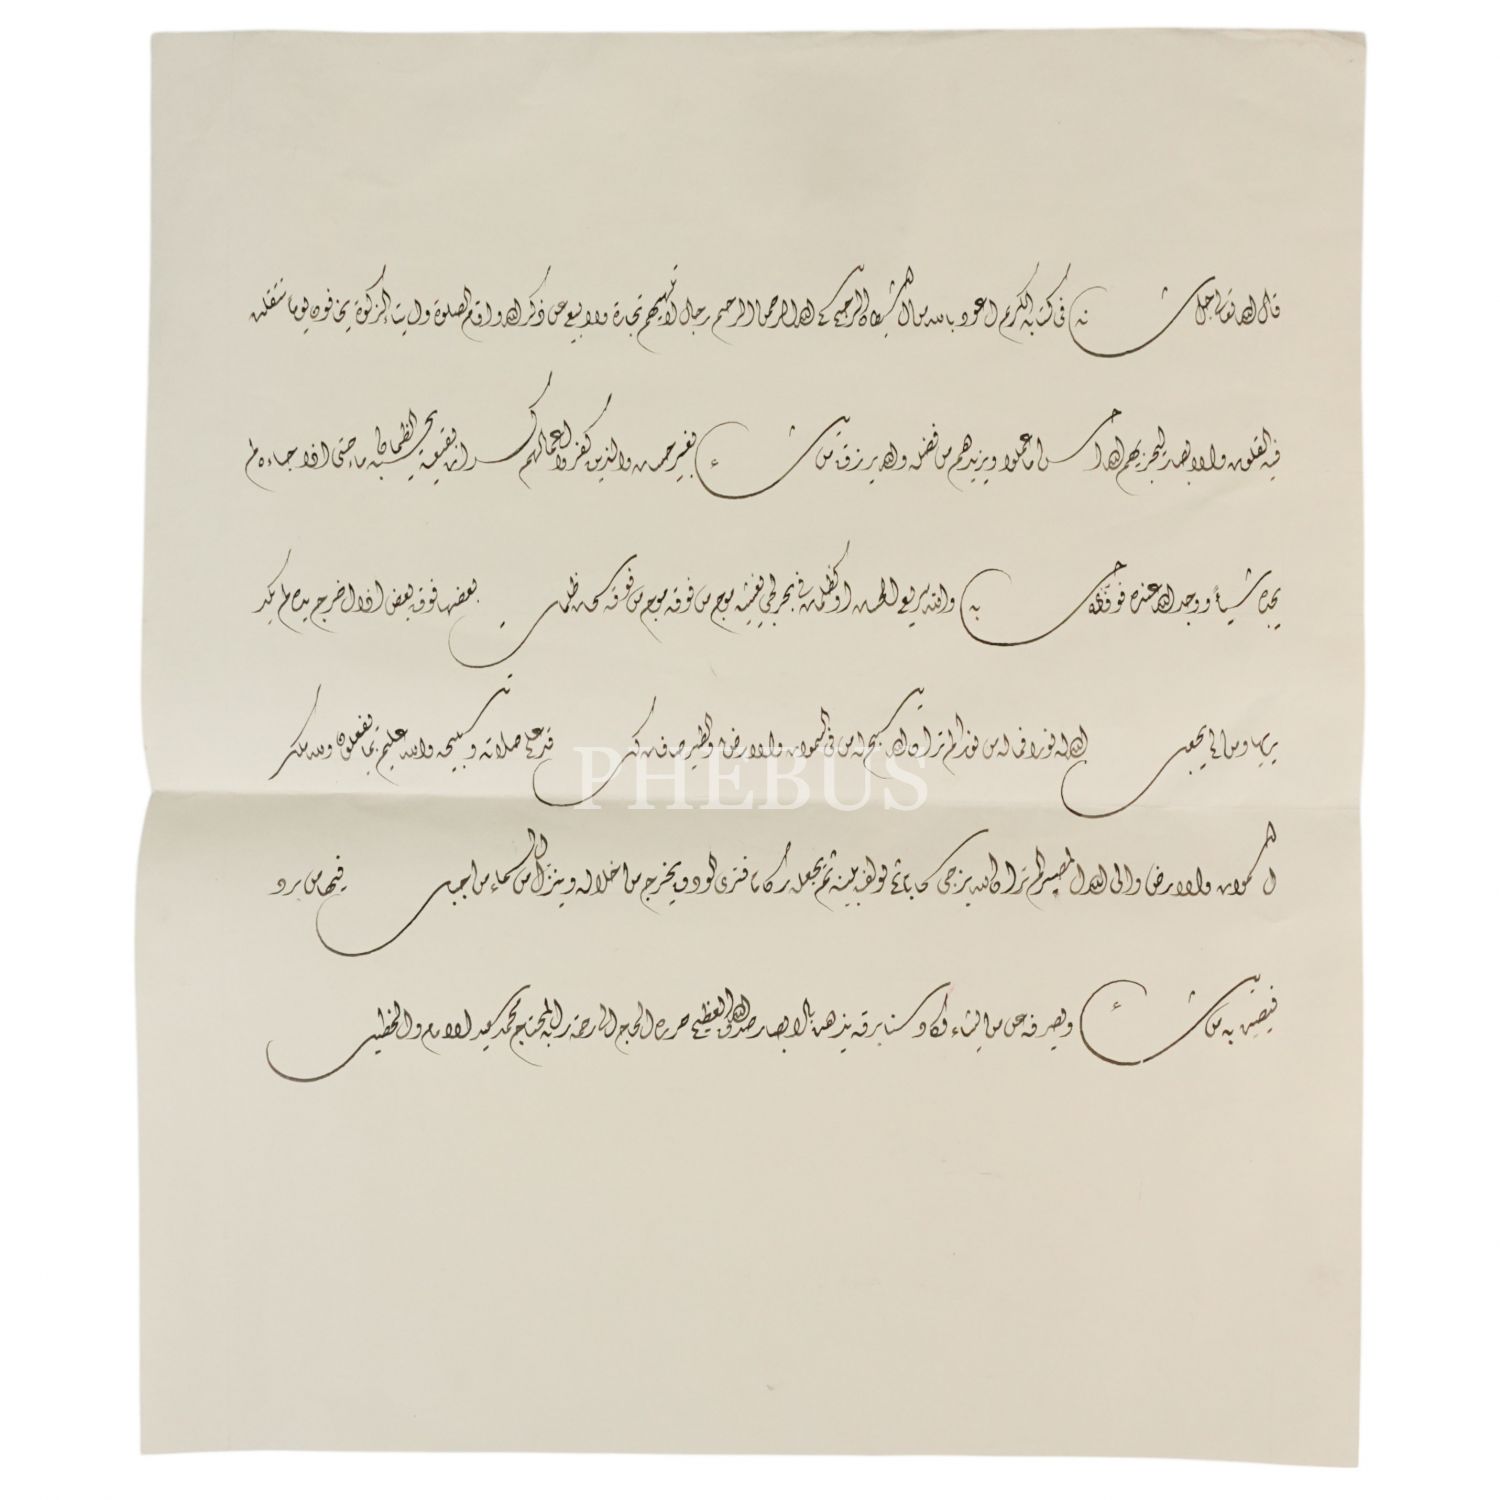 قال الله تعالى جل شانه في كتابه الكريم اعوذ بالله من الشيطان الرجيم بسم الله الرحمن الرحيم رجال لا تلهيهم تجارة ولا بيع عن ذكر الله واقام الصلوة وايتاء الزكوة يخافون يوما تتقلب
فيه القلوب والابصار ليجزيهم الله احسن ما عملوا ويزيدهم من فضله والله يرزق من يشاء بغير حساب والذين كفروا اعمالهم كسراب بقيعة يحسبه الظمان ماء حتى اذا جاءه لم
يجده شيئا ووجد الله عنده فوفيه حسابه والله سريع الحساب او كظلمات في بحر لجي يغشيه موج من فوقه موج من فوقه سحاب ظلمات بعضها فوق بعض اذا اخرج يده لم يكد
يريها ومن لم يجعل الله له نورا فما له من نور الم تر ان الله يسبح له من في السموات والارض والطير صافات كل قد علم صلاته وتسبيحه والله عليم بما يفعلون ولله ملك
السموات والارض والى الله المصير الم تر ان الله يزجي سحابا ثم يؤلف بينه ثم يجعله ركاما فترى الودق يخرج من خلاله وينزل من السماء من جبال فيها من برد
فيصيب به من يشاء ويصرفه عن من يشاء يكاد سنا برقه يذهب بالابصار صدق الله العظيم حرره الحاج الى رحمة ربه المحتاج محمد سعيد الامام والخطيب
PHEBUS